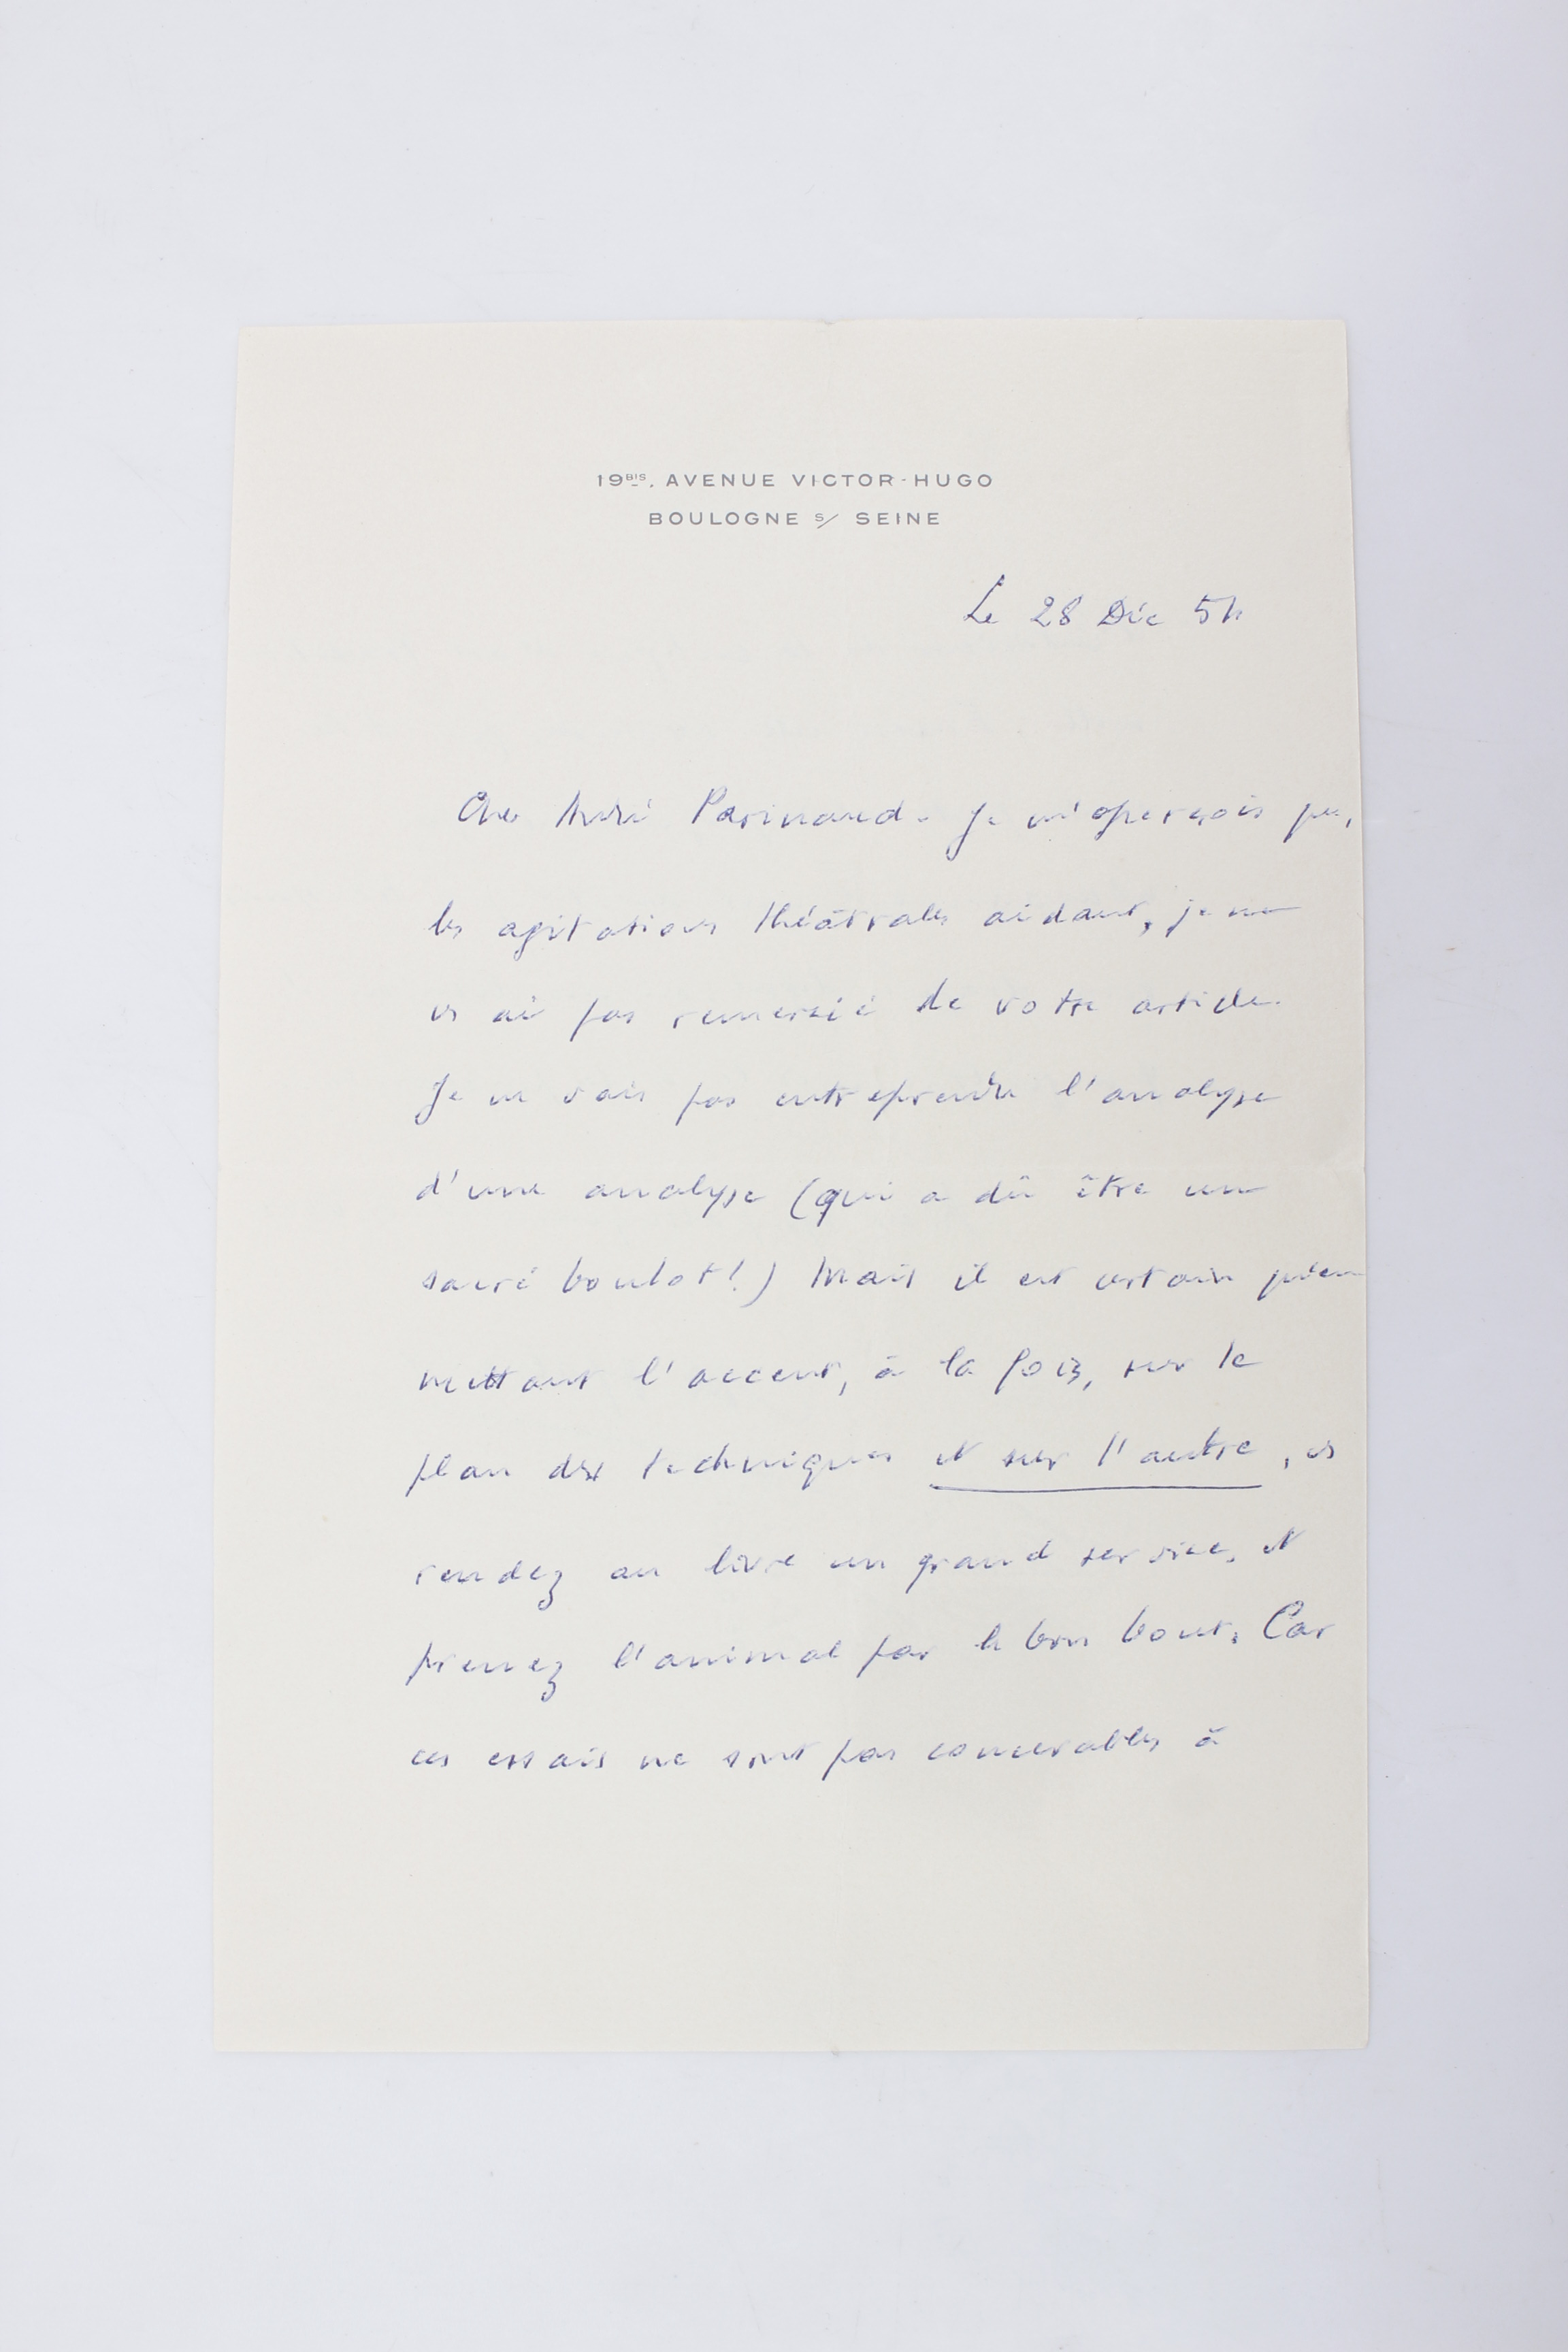 19BIS, AVENUE VICTOR-HUGO
BOULOGNE S/ SEINE
Le 28 Déc 54
Cher André Parinaud. Je m'aperçois que,
les agitations théâtrales aidant, je ne
vs ai pas remercié de votre article.
Je ne vais pas entreprendre l'analyse
d'une analyse (qui a dû être un
sacré boulot!) Mais il est certain qu'en
mettant l'accent, à la fois, sur le
plan des techniques et sur l'autre, vs
rendez au livre un grand service, et
prenez l'animal par le bon bout. Car
ces essais ne sont pas concevables à